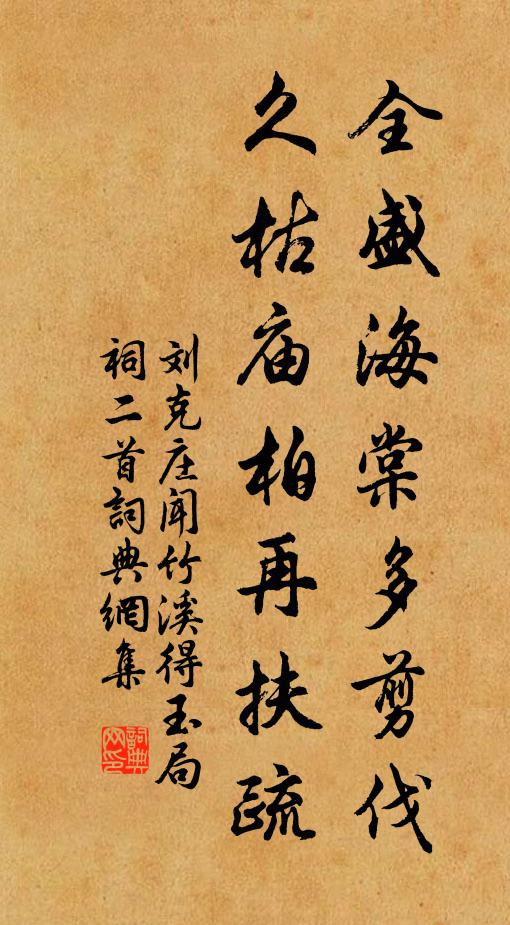 全盛海棠多剪伐
久枯庙柏再扶疏
刘克庄闻竹溪得玉局
祠二首詞典網集
詞典网印